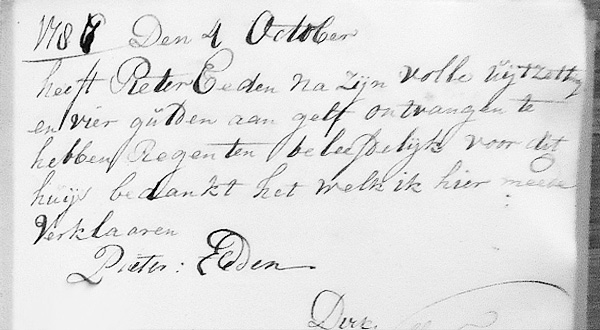 1787 Den 4 October
heeft Pieter Eeden na zijn volle uijtzetting
en vier gulden aan gelt ontvangen te
hebben Regenten beleefdelijk voor dit
huijs bedankt het welk ik hier meede
Verklaaren
Pieter: Eeden
Dirk